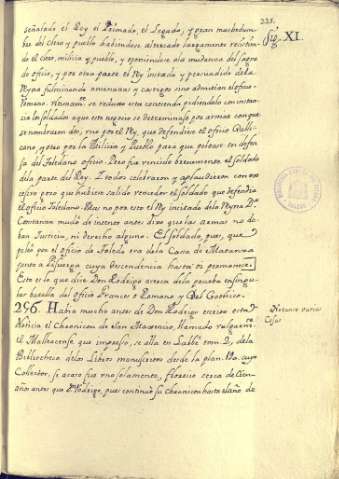 225.
Sig. XI.
señalado el Rey el Primado, el Legado, y gran muchedum-
bre del clero y pueblo habiendose altercado largamente resistien-
do el clero, milicia y pueblo, y oponiendose a la mudanza del sagro
oficio, y por otra parte el Rey incitado y persuadido de la
Reyna fulminando amenazas y castigos si no admitian el oficio
Romano.
se reduxo esta contienda pidiendolo con instan-
cia los soldados a que este negocio se determinase por armas con que
se nombraron dos, uno por el Rey, que defendiese el oficio Galli-
cano, y otro por la Milicia y Pueblo para que pelease en defen-
sa del Toledano oficio. Pero fue vencido brevemente el soldado
de la parte del Rey. Y todos celebraron y aplaudieron con ex-
ceso pero que hubiese salido vencedor el soldado que defendia
el oficio Toledano. Mas no por esto el Rey incitado de la Reyna Dª
Constanza mudo de intento antes dixo que las armas no da-
ban Justicia, ni derecho alguno. El soldado, pues, que
peleó por el oficio de Toledo era de la Casa de Matanza
junto a Pisuerga, cuya descendencia hasta oi permanece.
Esto es lo que dice Don Rodrigo acerca de la prueba en singu-
lar batalla del oficio Frances o Romano y del Gothico.
256. Havia mucho antes de Don Rodrigo escrito esta
Noticia el Chronicon de san Maxencio, llamado vulgarmte
el Malleacense que impreso, se alla en Labbé tom. 2, de la
Bibliotheca de los Libros manuscritos desde la plan. cuyo
Collector, si acaso fue uno solamente, florecio cerca de Cien
años antes que D. Rodrigo, pues continuó su Chronicon hasta el año de
Notense varias
cosas